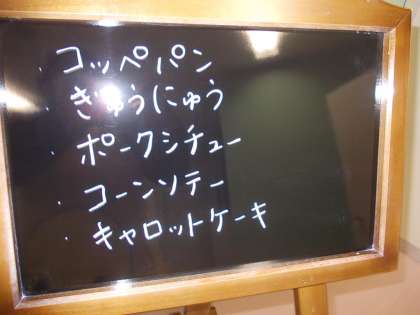 ・コッペパン
・ぎゅうにゅう
・ポークシチュー
・コーンソテー
・キャロットケーキ